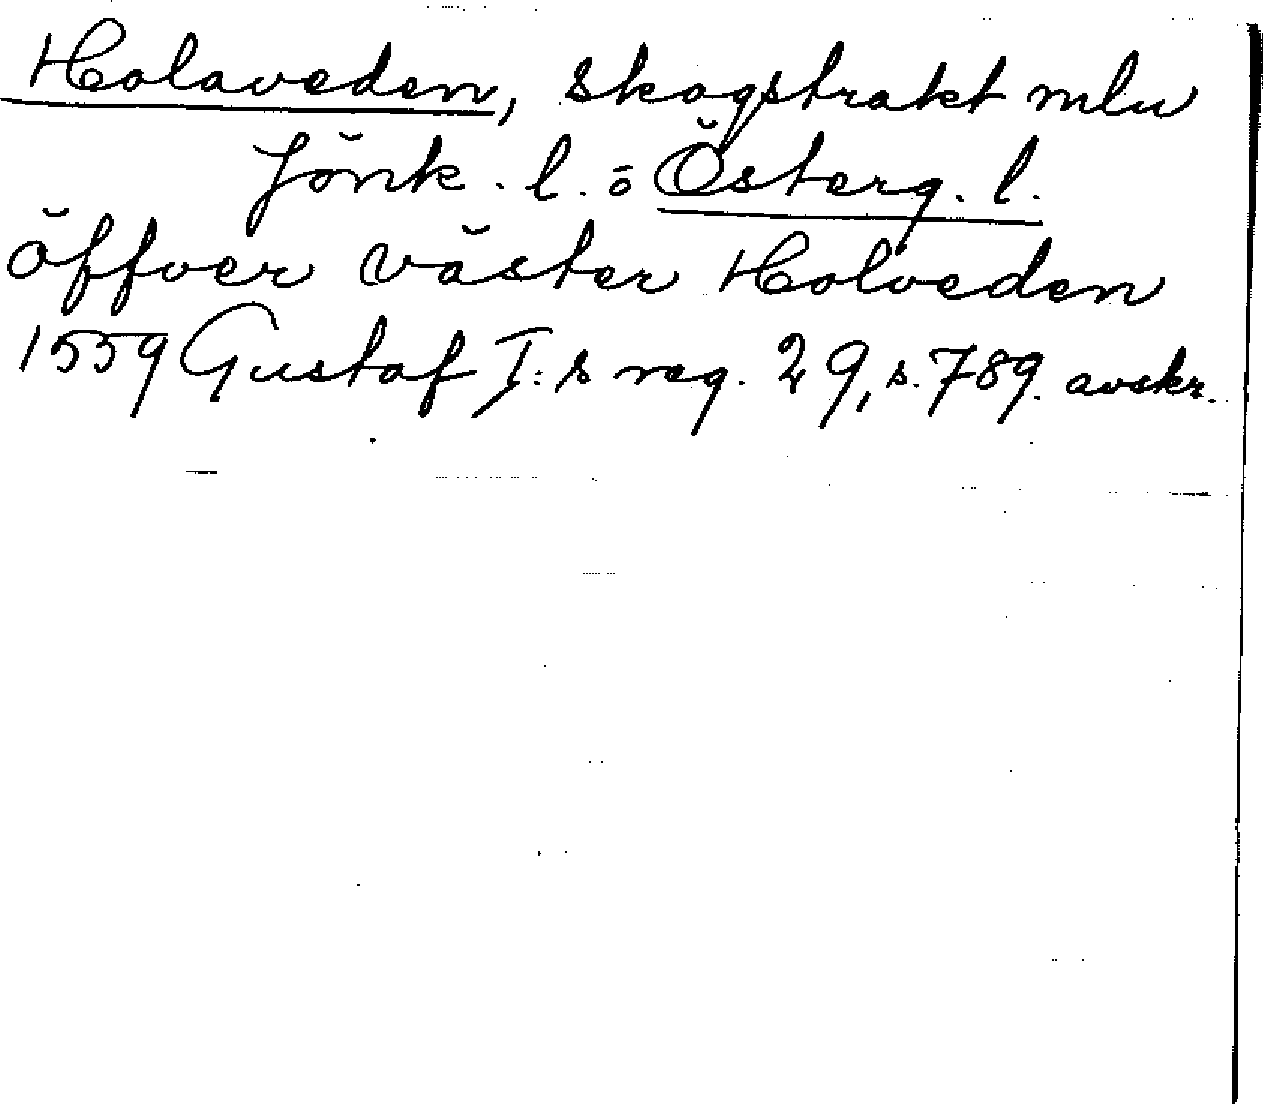 Holaveden, skogstrakt mlu
Jönk. l. o Österg. l.
öffver väster Holveden
1559 Gustaf I:s reg. 29, s. 789. avskr.